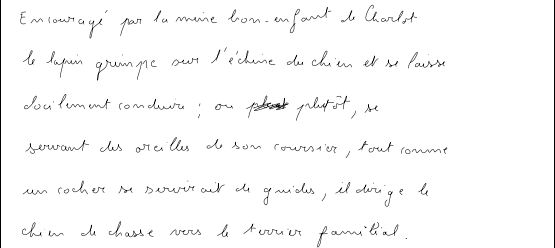 Encouragé par la mine bon-enfant de Charlot
le lapin grimpe sur l'échine du chien et se laisse
docilement conduire ; ou plutôt, se
servant des oreilles de son coursier, tout comme
un cocher se servirait de guides, il dirige le
chien de chasse vers le terrier familial.